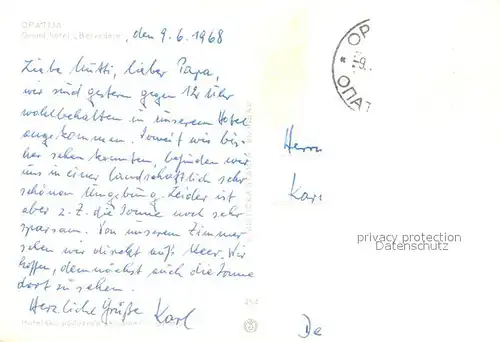 OPATIJA
Grand hotel „Belvedere"
, den 9.6.1968
Liebe Mutti, lieber Papa,
wir sind gestern gegen 12 Uhr
wohlbehalten in unserem Hotel
angekommen. Soweit wir bis-
her sehen konnten, befinden wir
uns in einer landschaftlich sehr
schönen Umgebung. Leider ist
aber z. Z. die Sonne noch sehr
sparsam. Von unserem Zimmer
sehen wir direkt aufs Meer. Wir
hoffen, demnächst auch die Sonne
dort zu sehen.
Herzliche Grüße Karl
OP
9.
ОПАТ
Herrn
Karl
privacy protection
Datenschutz
De